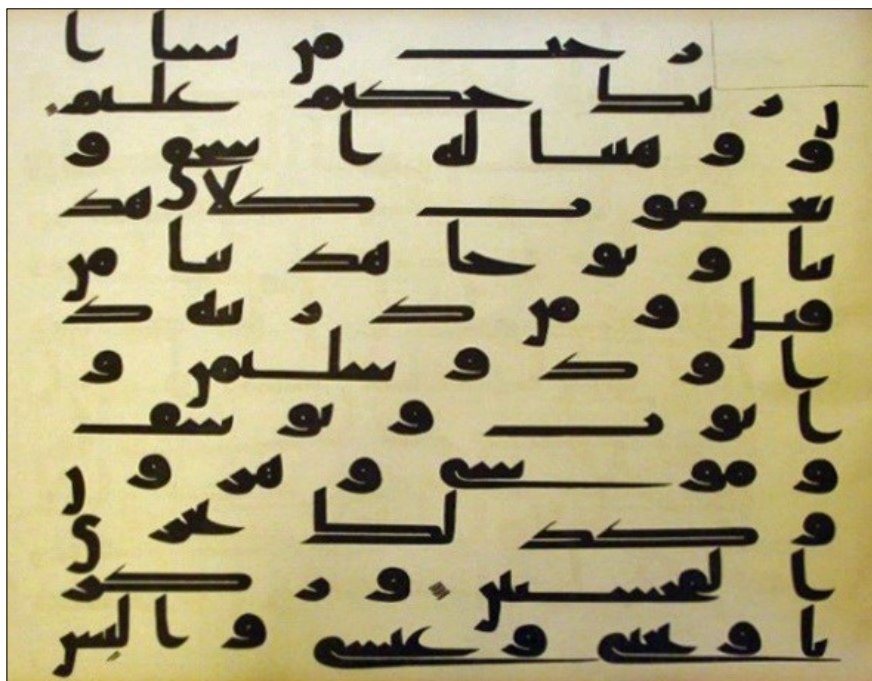 رجت من نشا ا
ن ربك حكيم عليم
و وهبنا له ا سحق و
يعقوب كلا هد
ينا و نوحا هدينا من
قبل و من ذريته د
ا و د و سليمن و
ا يوب و يوسف
و موسى و هرون
و كذلك نجزى
ا لمحسنين و زكر
يا و يحيى و عيسى و ا ليس